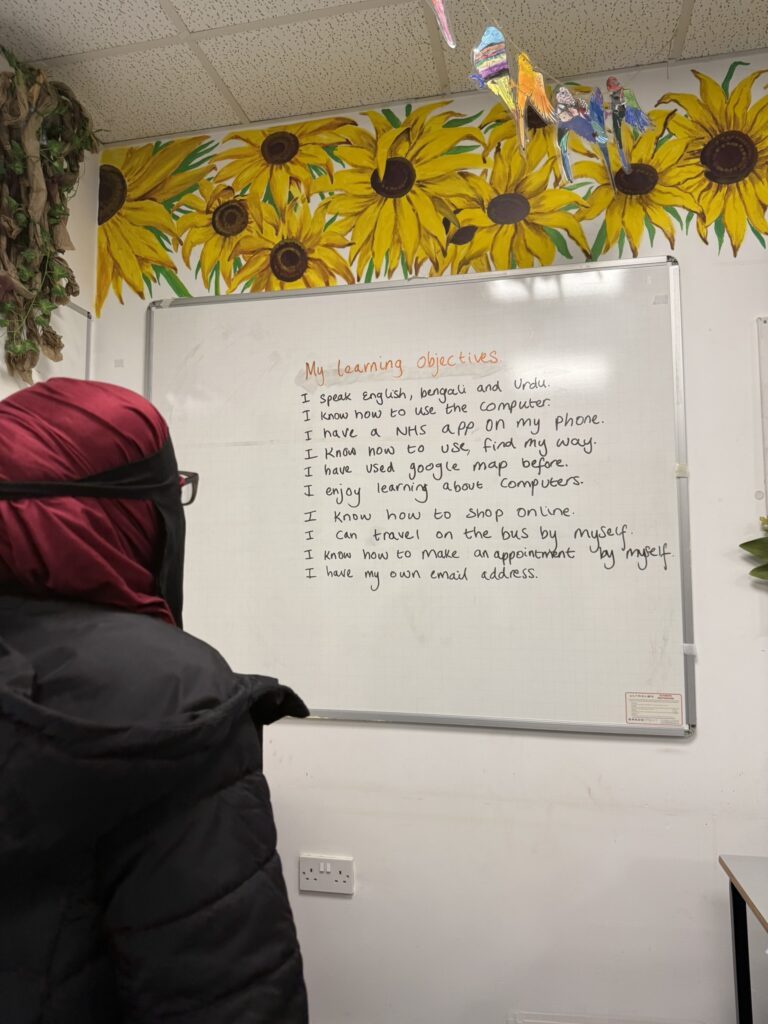 My learning objectives.
I speak English, bengali and Urdu.
I know how to use the computer.
I have a NHS app on my phone.
I know how to use, find my way.
I have used google map before.
I enjoy learning about computers.
I know how to shop online.
I can travel on the bus by myself.
I know how to make an appointment by myself.
I have my own email address.